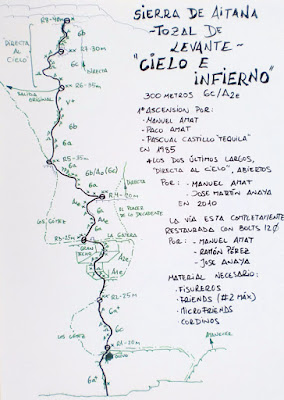 SIERRA DE AITANA
~TOZAL DE
LEVANTE~
"CIELO E
INFIERNO"
300 METROS 6c/A2e
1ª ASCENSION POR:
- MANUEL AMAT
- PACO AMAT
- PASCUAL CASTILLO "TEQUILA"
EN 1985
*LOS DOS ÚLTIMOS LARGOS,
"DIRECTA AL CIELO", ABIERTOS
POR: - MANUEL AMAT
- JOSE MARTÍN ANAYA
LA VÍA ESTA COMPLETAMENTE
RESTAURADA CON BOLTS 12Ø
POR: - MANUEL AMAT
- RAMÓN PÉREZ
- JOSE ANAYA
MATERIAL NECESARIO:
- FISUREROS
- FRIENDS (#2 MÁX)
- MICROFRIENDS
- CORDINOS
R8-40m
DIRECTA
AL CIELO
6b
R7-30m
6c
DIRECTA
SALIDA
ORIGINAL
R6-35m
6a
V+
R5-35m
6a
6b/A0 (6c)
DIRECTA
6a
R4-20m
EL PILAR
DE LO DECADENTE
LOS GÓTICS
R3-25m
LA GUERRA
GRAN
TECHO
A2e
A1e
R2-25m
V+
6a
LOS GÓTICS
6c
R1-25m
6a+